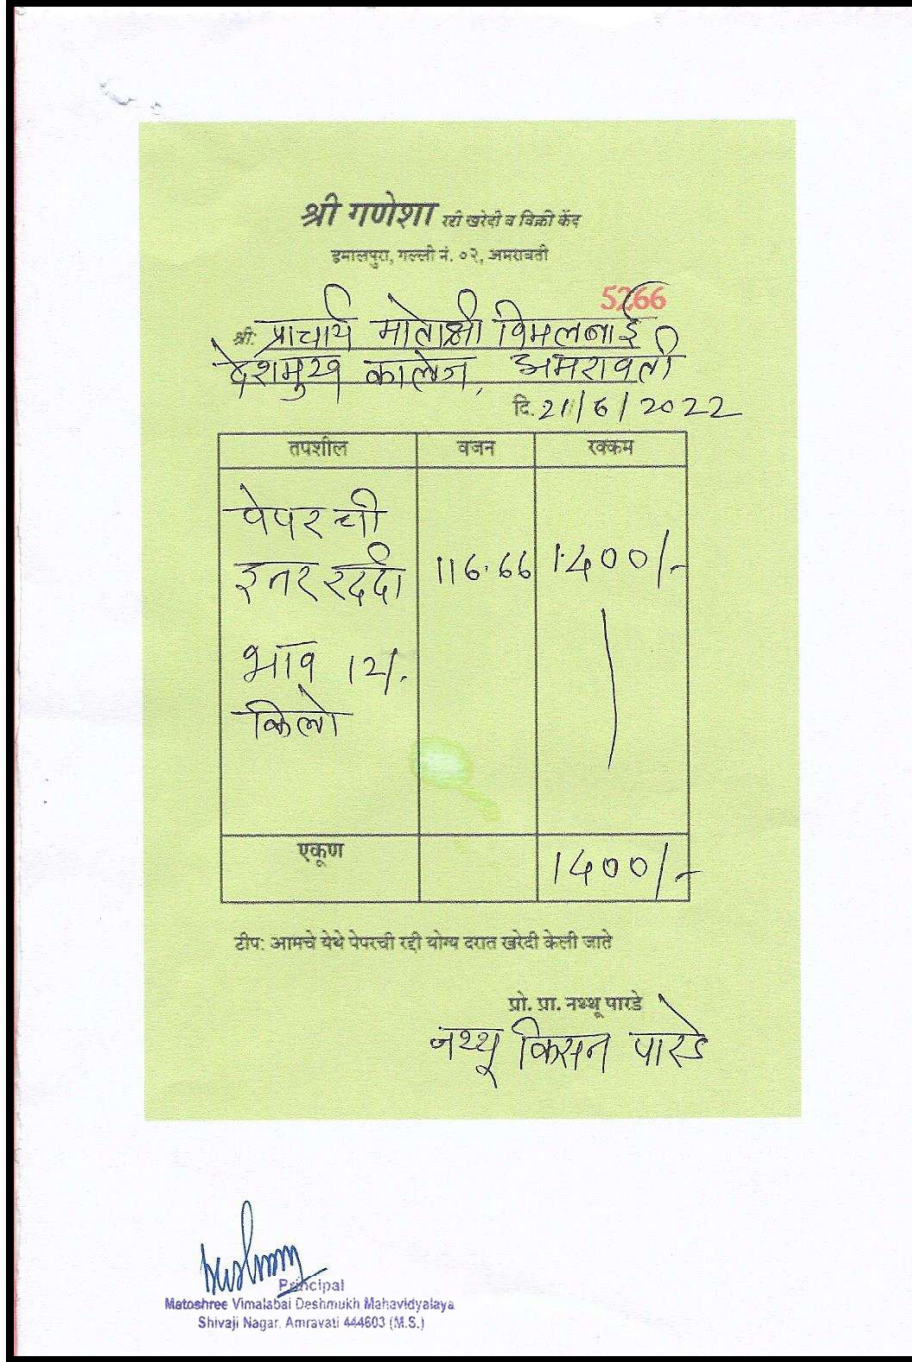 श्री गणेशा रद्दी खरेदी व विक्री केंद्र
इमालपुरा, गल्ली नं. ०२, अमरावती
5266
श्री: प्राचार्य मातोश्री विमलबाई
देशमुख कालेज, अमरावती
दि. 21/6/2022
तपशील वजन रक्कम
पेपर ची
इतर रद्दी 116.66 1400/-
भाव 12/.
किलो
एकूण 1400/-
टीप: आमचे येथे पेपरची रद्दी योग्य दरात खरेदी केली जाते
प्रो. प्रा. नथ्थू पारडे
नथ्थू किसन पारडे
Principal
Matoshree Vimalabai Deshmukh Mahavidyalaya
Shivaji Nagar, Amravati 444603 (M.S.)